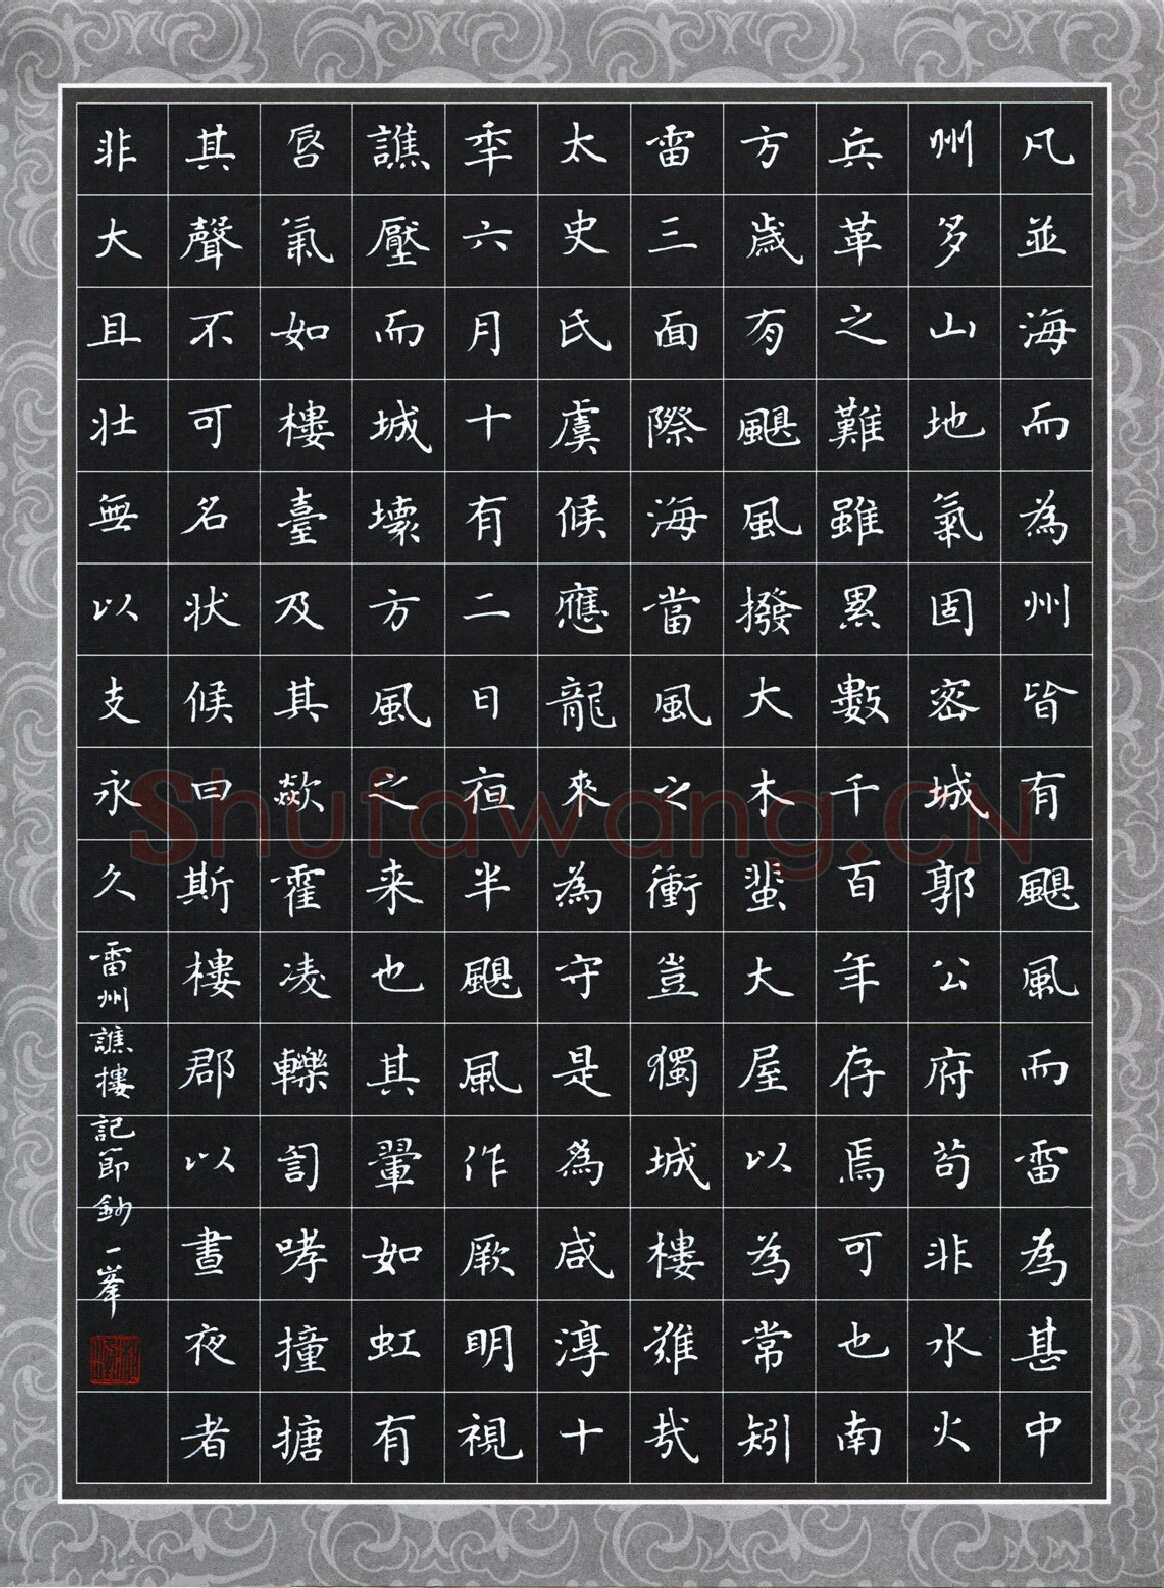 凡並海而為州皆有颶風而雷為甚中
州多山地氣固密城郭公府苟非水火
兵革之難雖累數千百年存焉可也南
方歲有颶風撥大木蜚大屋以為常矧
雷三面際海當風之衝豈獨城樓難哉
太史氏虞候應龍來為守是為咸淳十
年六月十有二日夜半颶風作厥明視
譙壓而城壞方風之来也其翬如虹有
唇氣如樓臺及其歘霍凌轢訇哮撞搪
其聲不可名狀候曰斯樓郡以晝夜者
非大且壯無以支永久
雷州譙樓記節鈔 一峯
Shufawang.CN